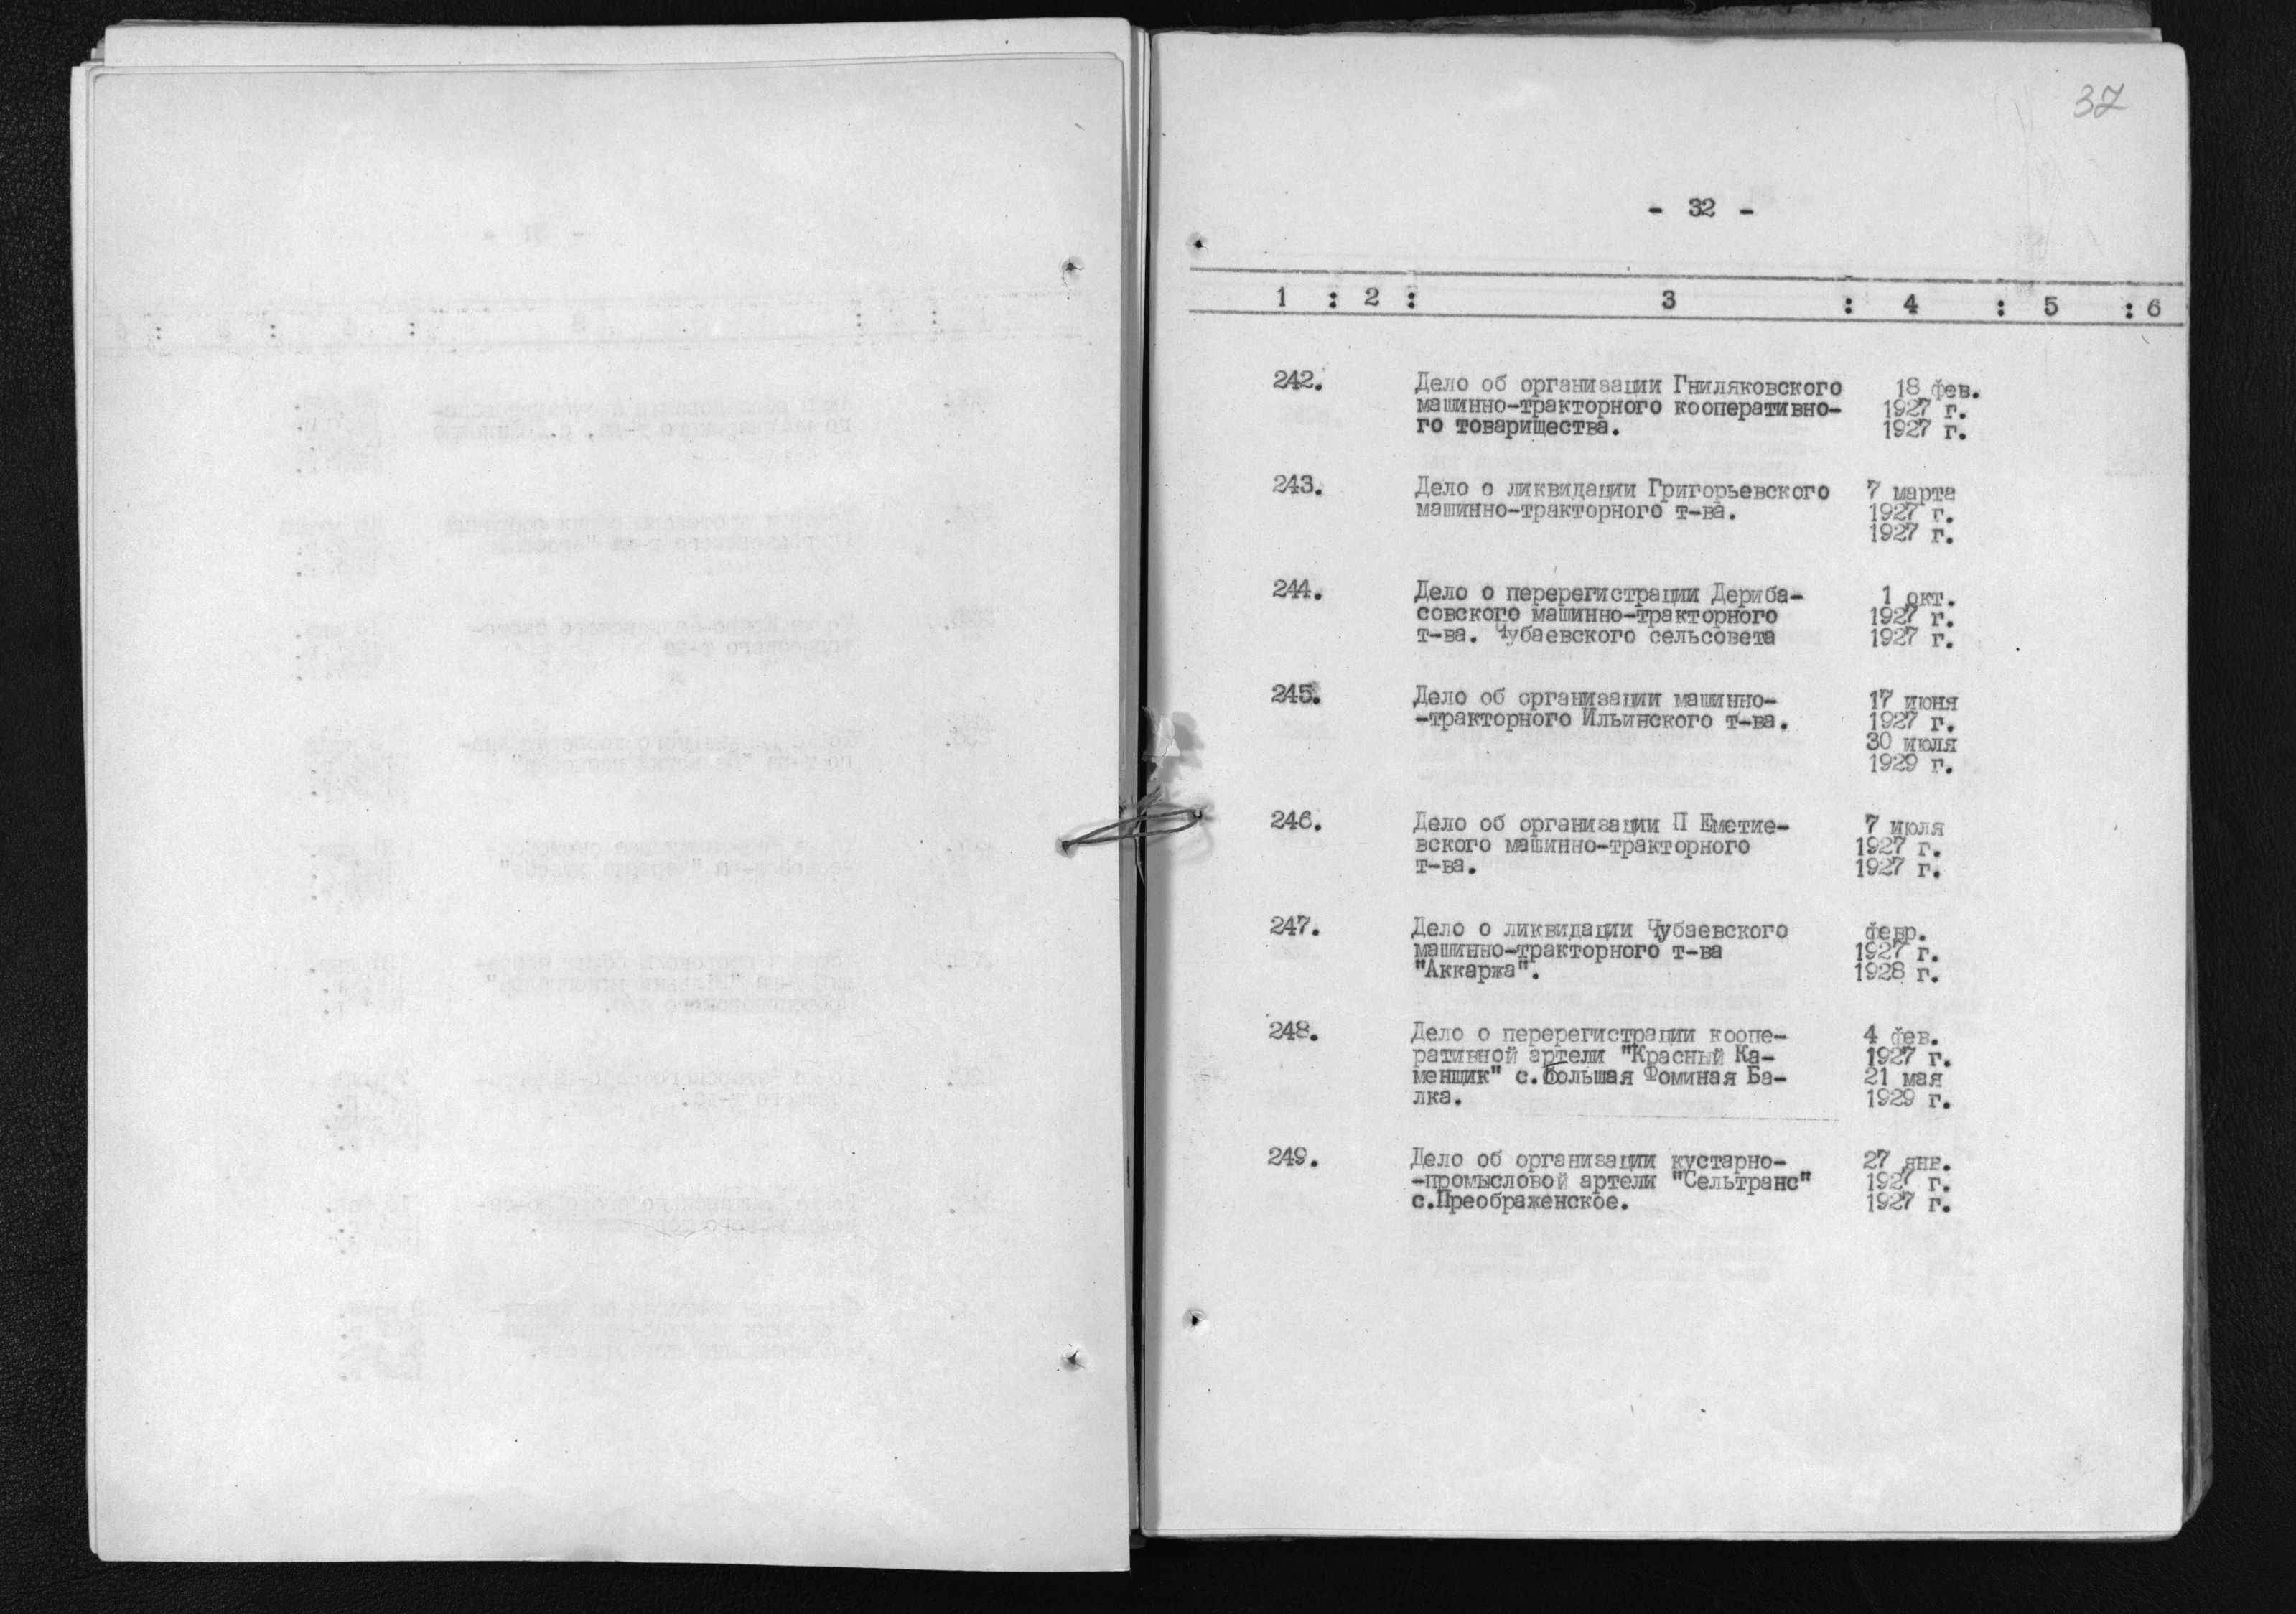 37
- 32 -
1 : 2 : 3 : 4 : 5 : 6
242. Дело об организации Гниляковского 18 фев.
машинно-тракторного кооперативно- 1927 г.
го товарищества. 1927 г.
243. Дело о ликвидации Григорьевского 7 марта
машинно-тракторного т-ва. 1927 г.
1927 г.
244. Дело о перерегистрации Дериба- 1 окт.
совского машинно-тракторного 1927 г.
т-ва. Чубаевского сельсовета 1927 г.
245. Дело об организации машинно- 17 июня
-тракторного Ильинского т-ва. 1927 г.
30 июля
1929 г.
246. Дело об организации П Еметие- 7 июля
вского машинно-тракторного 1927 г.
т-ва. 1927 г.
247. Дело о ликвидации Чубаевского февр.
машинно-тракторного т-ва 1927 г.
"Аккаржа". 1928 г.
248. Дело о перерегистрации коопе- 4 фев.
ративной артели "Красный Ка- 1927 г.
менщик" с.Большая Фоминая Ба- 21 мая
лка. 1929 г.
249. Дело об организации кустарно- 27 янв.
-промысловой артели "Сельтранс" 1927 г.
с.Преображенское. 1927 г.